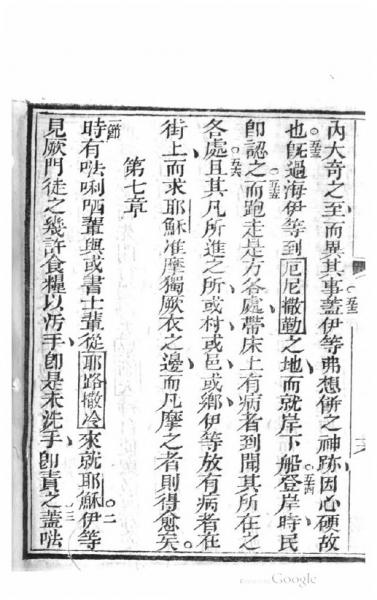 內大奇之至而異其事蓋伊等弗想餅之神跡因心硬故
也。五三旣過海伊等到厄尼撒勒之地而就岸。五四下船登岸時民
卽認之。五五而跑走是方各處帶床上有病者到聞其所在之
各處。五六且其凡所進之所或村或邑或鄉伊等放有病者在
街上而求耶穌准摩獨厥衣之邊而凡摩之者則得愈矣。
第七章
一節時有㗎唎哂輩與或書士輩從耶路撒冷來就耶穌。二伊等
見厥門徒之幾許食糧以汚手卽是未洗手卽責之。三蓋㗎
Google